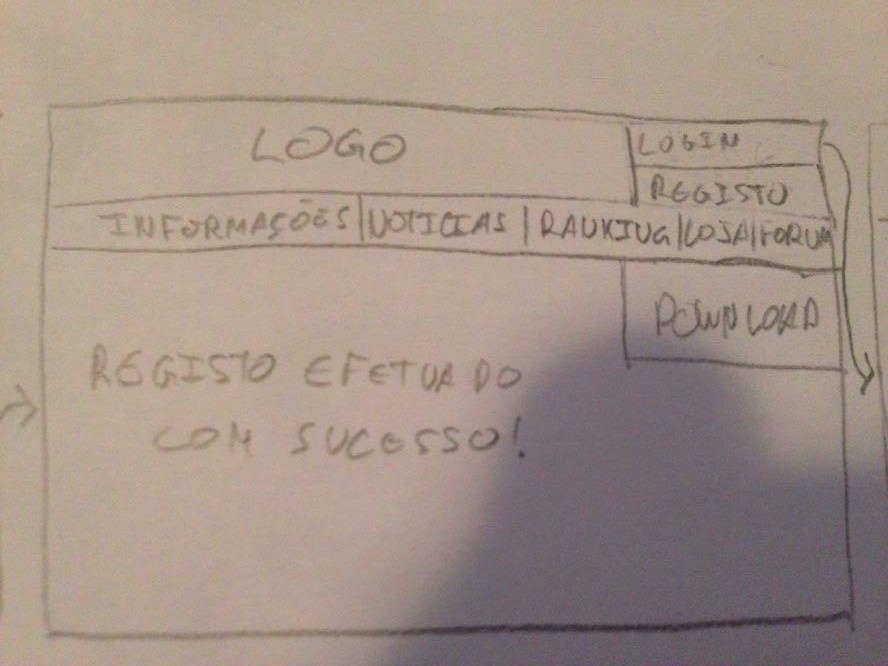 LOGO
LOGIN
REGISTO
INFORMAÇÕES | NOTICIAS | RANKING | LOJA | FORUM
DOWNLOAD
REGISTO EFETUADO
COM SUCESSO!